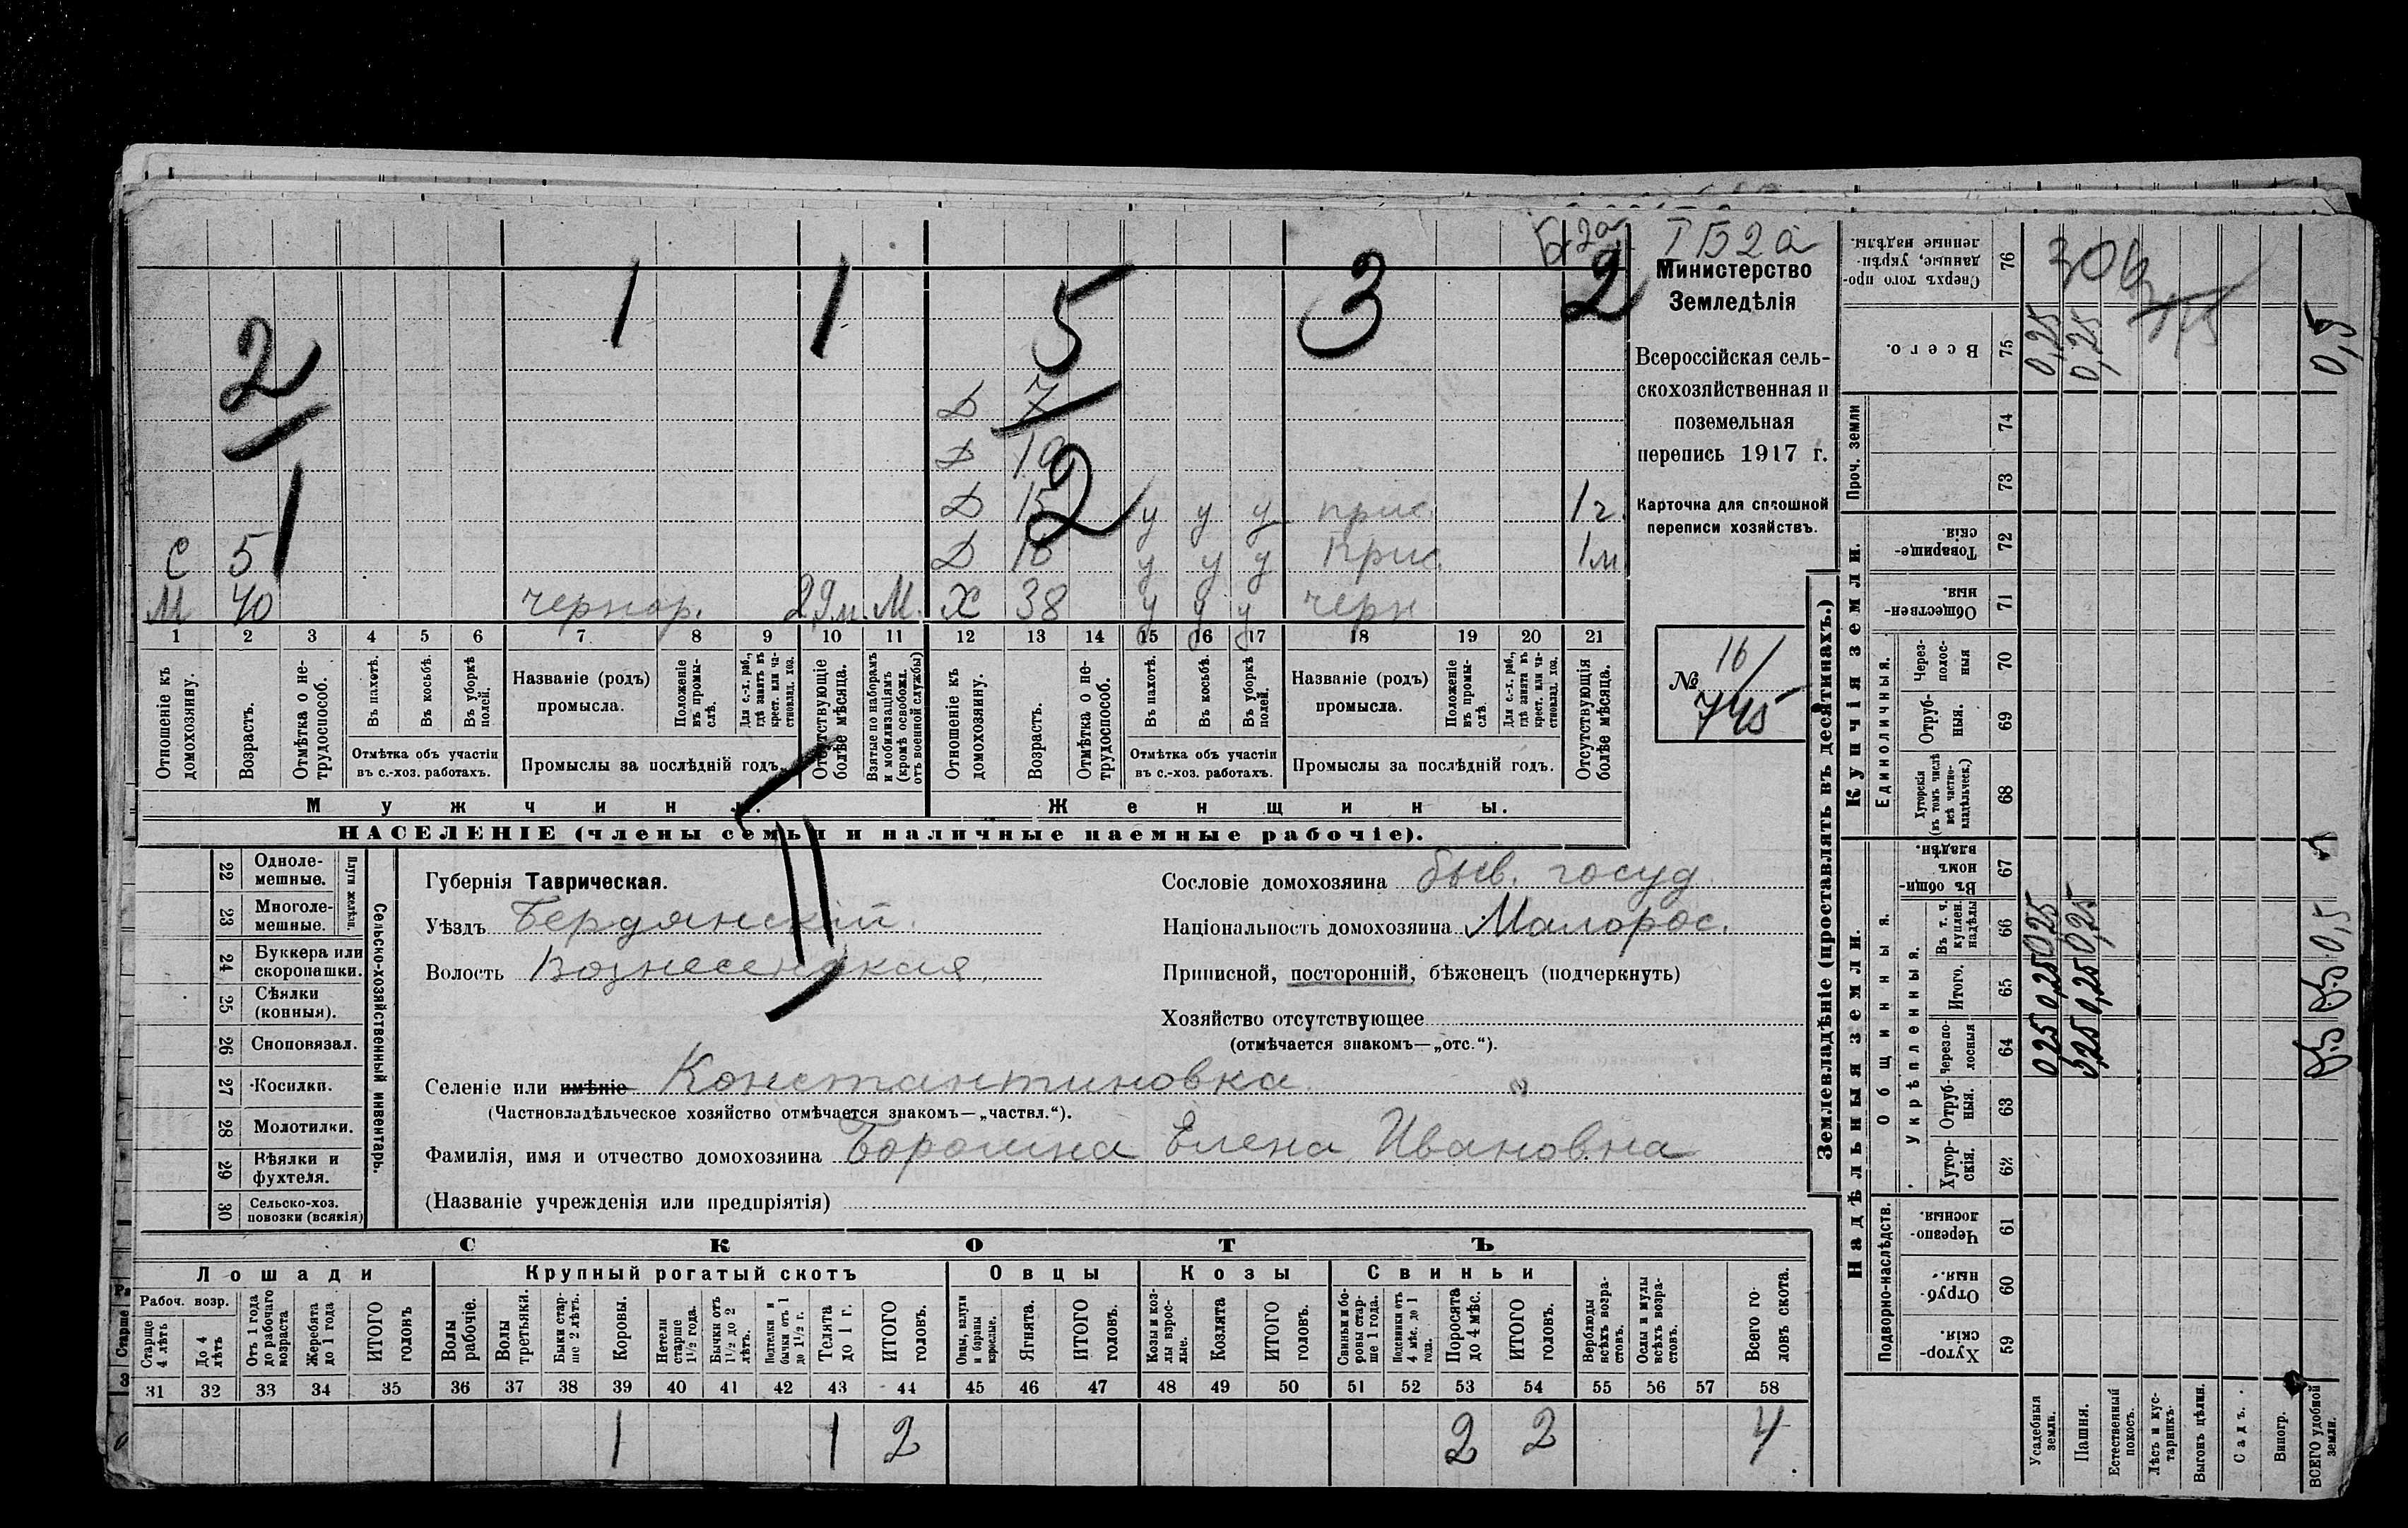 Б2а I Б 2 а
1 1 5 3 2
2
1
2
Д 7
Д 10
Д 15 у у у прис. 1 г.
С 5 Д 16 у у у прис. 1 м
М 40 чернор. 29 м. М. Х 38 у у у черн
1 2 3 4 5 6 7 8 9 10 11 12 13 14 15 16 17 18 19 20 21
Отношеніе къ домохозяину.
Возрастъ.
Отмѣтка о нетрудоспособ.
Въ пахотѣ.
Въ косьбѣ.
Въ уборкѣ полей.
Отмѣтка объ участіи
въ с.-хоз. работахъ.
Названіе (родъ)
промысла.
Положеніе въ промыслѣ.
Для с.-х. раб., гдѣ занятъ въ крест. или частновлад. хоз.
Промыслы за послѣдній годъ.
Отсутствующіе болѣе мѣсяца.
Взятые по наборамъ и мобилизаціямъ (кромѣ освобожд. отъ военной службы)
Отношеніе къ домохозяину.
Возрастъ.
Отмѣтка о нетрудоспособ.
Въ пахотѣ.
Въ косьбѣ.
Въ уборкѣ полей.
Отмѣтка объ участіи
въ с.-хоз. работахъ.
Названіе (родъ)
промысла.
Положеніе въ промыслѣ.
Для с.-х. раб., гдѣ занята въ крест. или частновлад. хоз.
Промыслы за послѣдній годъ.
Отсутствующія болѣе мѣсяца.
Мужчины.
Женщины.
НАСЕЛЕНІЕ (члены семьи и наличные наемные рабочіе).
Министерство
Земледѣлія
Всероссійская сель-
скохозяйственная и
поземельная
перепись 1917 г.
Карточка для сплошной
переписи хозяйствъ.
№ 16/
745
22 Одноле-
мешные.
23 Многоле-
мешные.
Плуги желѣзн.
24 Буккера или
скоропашки.
25 Сѣялки
(конныя).
26 Сноповязал.
27 Косилки.
28 Молотилки.
29 Вѣялки и
фухтеля.
30 Сельско-хоз.
повозки (всякія)
Сельско-хозяйственный инвентарь.
Губернія Таврическая.
Уѣздъ Бердянскій.
Волость Вознесенская
Сословіе домохозяина быв. госуд.
Національность домохозяина Малорос.
Приписной, посторонній, бѣженецъ (подчеркнуть)
Хозяйство отсутствующее
(отмѣчается знакомъ—„отс.“).
Селеніе или имѣніе Константиновка
(Частновладѣльческое хозяйство отмѣчается знакомъ—„частвл.“).
Фамилія, имя и отчество домохозяина Елена Ивановна
(Названіе учрежденія или предпріятія)
СКОТЪ
Лошади
Крупный рогатый скотъ
Овцы
Козы
Свиньи
Рабоч. возр.
Старше 4 лѣтъ
До 4 лѣтъ
Отъ 1 года до рабочаго возраста
Жеребята до 1 года
ИТОГО головъ
Волы рабочіе.
Волы третьяки.
Быки старше 2 лѣтъ.
Коровы.
Нетели старше 1½ года.
Бычки отъ 1½ до 2 лѣтъ.
Подтелки и бычки отъ 1 до 1½ г.
Телята до 1 г.
ИТОГО головъ.
Овцы, валухи и бараны взрослые.
Ягнята.
ИТОГО головъ.
Козы и козлы взрослые.
Козлята
ИТОГО головъ.
Свиньи и боровы старше 1 года.
Подсвинки отъ 4 мѣс. до 1 года.
Поросята до 4 мѣс.
ИТОГО головъ.
Верблюды всѣхъ возрастовъ.
Ослы и мулы всѣхъ возрастовъ.
Всего головъ скота.
31 32 33 34 35 36 37 38 39 40 41 42 43 44 45 46 47 48 49 50 51 52 53 54 55 56 57 58
1 1 2 2 2 4
Землевладѣніе (проставлять въ десятинахъ.)
Надѣльныя земли.
Купчія земли.
Проч. земли
Подворно-наслѣдств.
Общинныя.
Укрѣпленныя.
Единоличныя.
59 Хуторскія
60 Отрубныя.
61 Черезполосныя.
62 Хуторскія.
63 Отрубныя.
64 Черезполосныя
65 Итого.
66 Въ т. ч. куплен. надѣлы
67 Въ общинномъ владѣн.
68 Хуторскія (въ томъ числѣ всѣ частновладѣльческ.)
69 Отрубныя.
70 Черезполосныя
71 Общественныя.
72 Товарищескія
73
74
75 Всего.
76 Сверхъ того проданные, укрѣпленные надѣлы.
Усадебныя земли. 0,25 0,25 0,25 0,25
Пашня. 0,25 0,25 0,25 0,25
Естественный покосъ.
Лѣсъ и кустарникъ.
Выгонъ цѣлин.
Садъ.
Виногр.
ВСЕГО удобной земли. 0,5 0,5 0,5 0,5